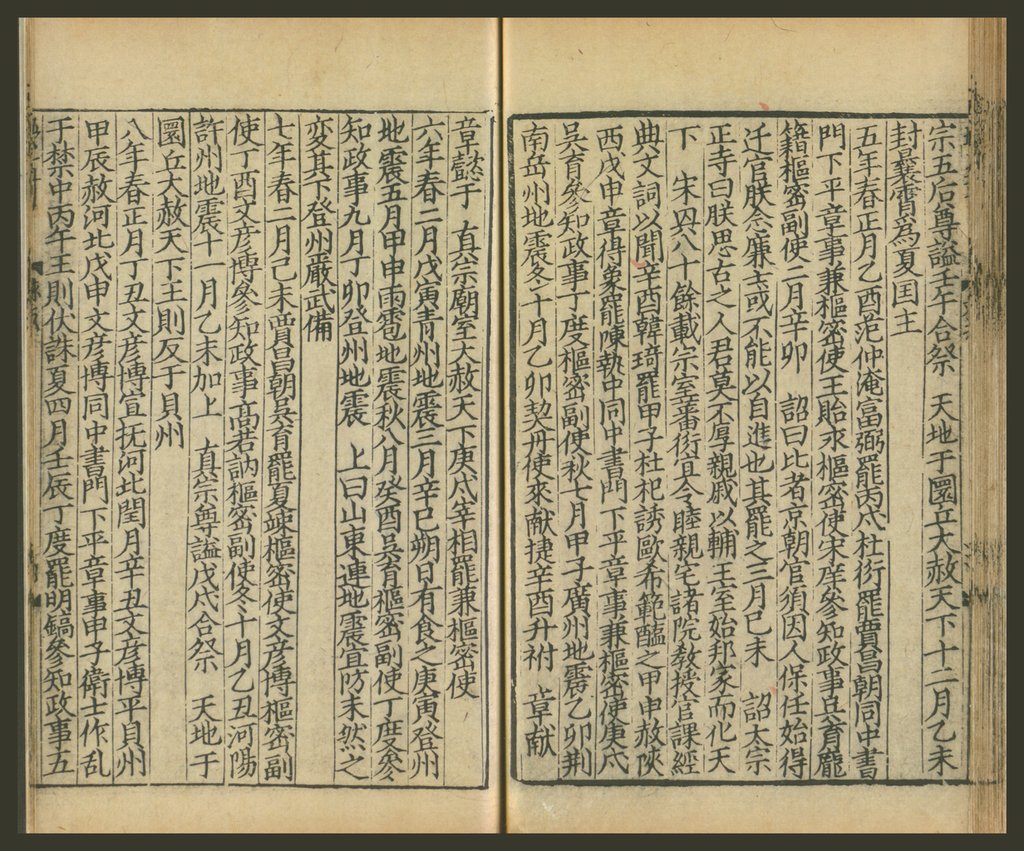 宗五后尊謚壬午合祭　天地于圜丘大赦天下十二月乙未
封曩霄爲夏国主
五年春正月乙酉范仲淹富弼罷丙戌杜衍罷賈昌朝同中書
門下平章事兼樞密使王貽永樞密使宋庠參知政事吳育龐
籍樞密副使二月辛卯　詔曰比者京朝官須因人保任始得
迁官朕念廉士或不能以自進也其罷之三月己未　詔太宗
正寺曰朕思古之人君莫不厚親戚以輔王室始邦家而化天
下　宋興八十餘載宗室蕃衍宜令睦親宅諸院教授官課經
典文詞以聞辛酉韓琦罷甲子杜杞誘歐希範醢之甲申赦陝
西戊申章得象罷陳執中同中書門下平章事兼樞密使庚戌
吳育參知政事丁度樞密副使秋七月甲子廣州地震乙卯荆
南岳州地震冬十月乙卯契丹使來献捷辛酉升祔　章献
章懿于　真宗廟室大赦天下庚戌宰相罷兼樞密使
六年春二月戊寅青州地震三月辛巳朔日有食之庚寅登州
地震五月甲申雨雹地震秋八月癸酉吳育樞密副使丁度參
知政事九月丁卯登州地震　上曰山東連地震宜防未然之
变其下登州嚴武備
七年春二月己未賈昌朝吳育罷夏竦樞密使文彦博樞密副
使丁酉文彦博參知政事高若訥樞密副使冬十月乙丑河陽
許州地震十一月乙未加上　真宗尊謚戊戌合祭　天地于
圜丘大赦天下王則反于貝州
八年春正月丁丑文彦博宣抚河北閏月辛丑文彦博平貝州
甲辰赦河北戊申文彦博同中書門下平章事甲子衛士作乱
于禁中丙午王則伏誅夏四月壬辰丁度罷明鎬參知政事五